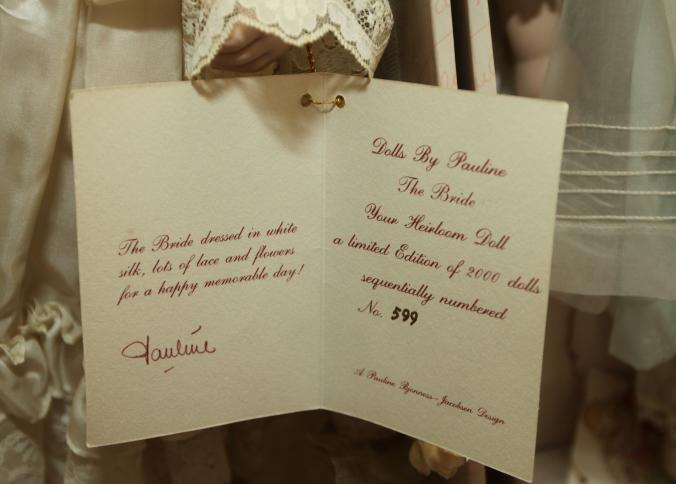 The Bride dressed in white
silk, lots of lace and flowers
for a happy memorable day!
Pauline
Dolls By Pauline
The Bride
Your Heirloom Doll
a limited Edition of 2000 dolls
sequentially numbered
No. 599
A Pauline Bjonness-Jacobsen Design